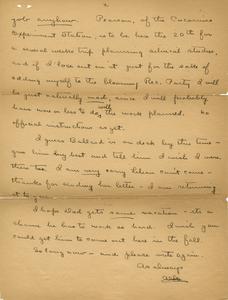 yolo anyhow. Pearson, of the Cocarino
Experiment Station, is to be here the 20th for
a several weeks trip planning actual studies,
and if I lose out on it just for the sake of
adding myself to the blooming Rec. Party I will
be just naturally mad, since I will probably
have more or less to do with the work planned. No
official instructions as yet.
I guess Ballard is on deck by this time -
give him my best and tell him I wish I were
there too. I am very sorry Edean can't come -
thanks for sending her letter - I am returning
it to you.
I hope Dad gets some vacation - its a
shame he has to work so hard. I wish you
could get him to come out here in the fall.
So long now - and please write again.
As always